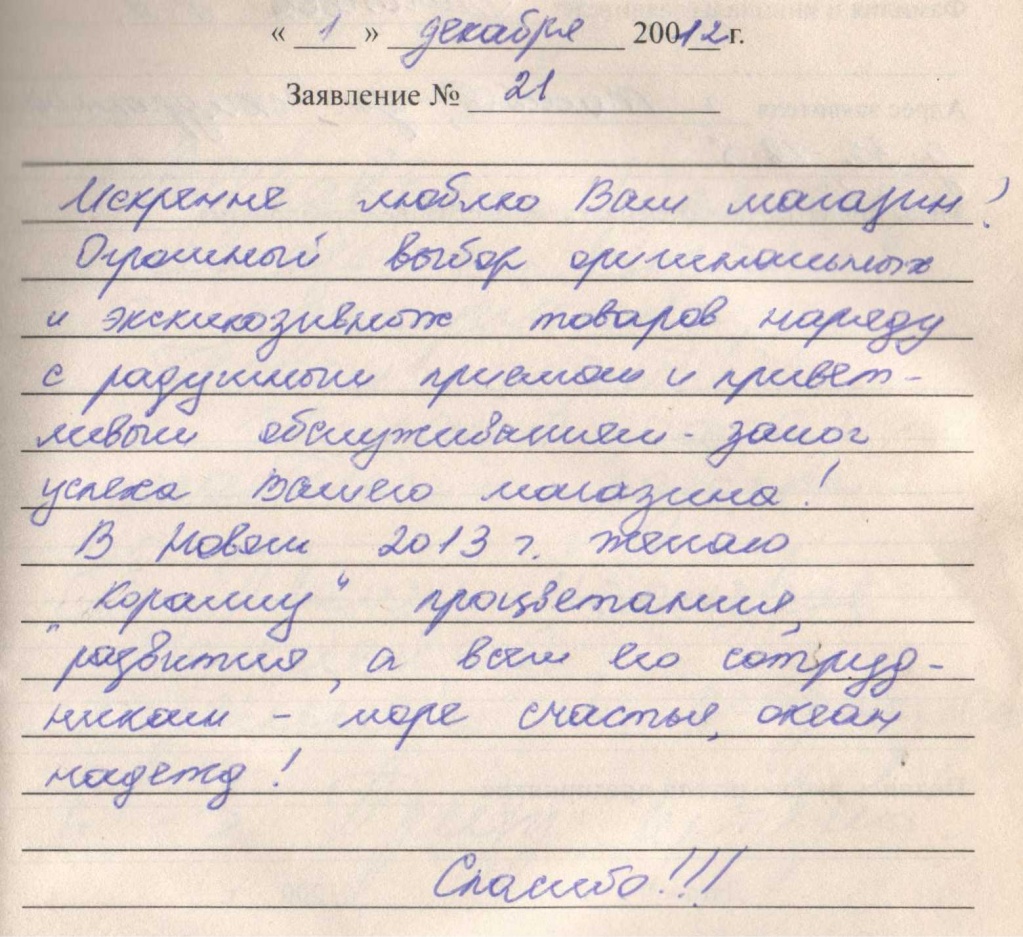 « 1 » декабря 20012 г.
Заявление № 21
Искренне люблю Ваш магазин!
Огромный выбор оригинальных
и эксклюзивных товаров наряду
с радушным приемом и привет-
ливым обслуживанием - залог
успеха Вашего магазина!
В Новом 2013 г. желаю
"Кораллу" процветания,
развития, а всем его сотруд-
никам - море счастья, океан
надежд!
Спасибо!!!